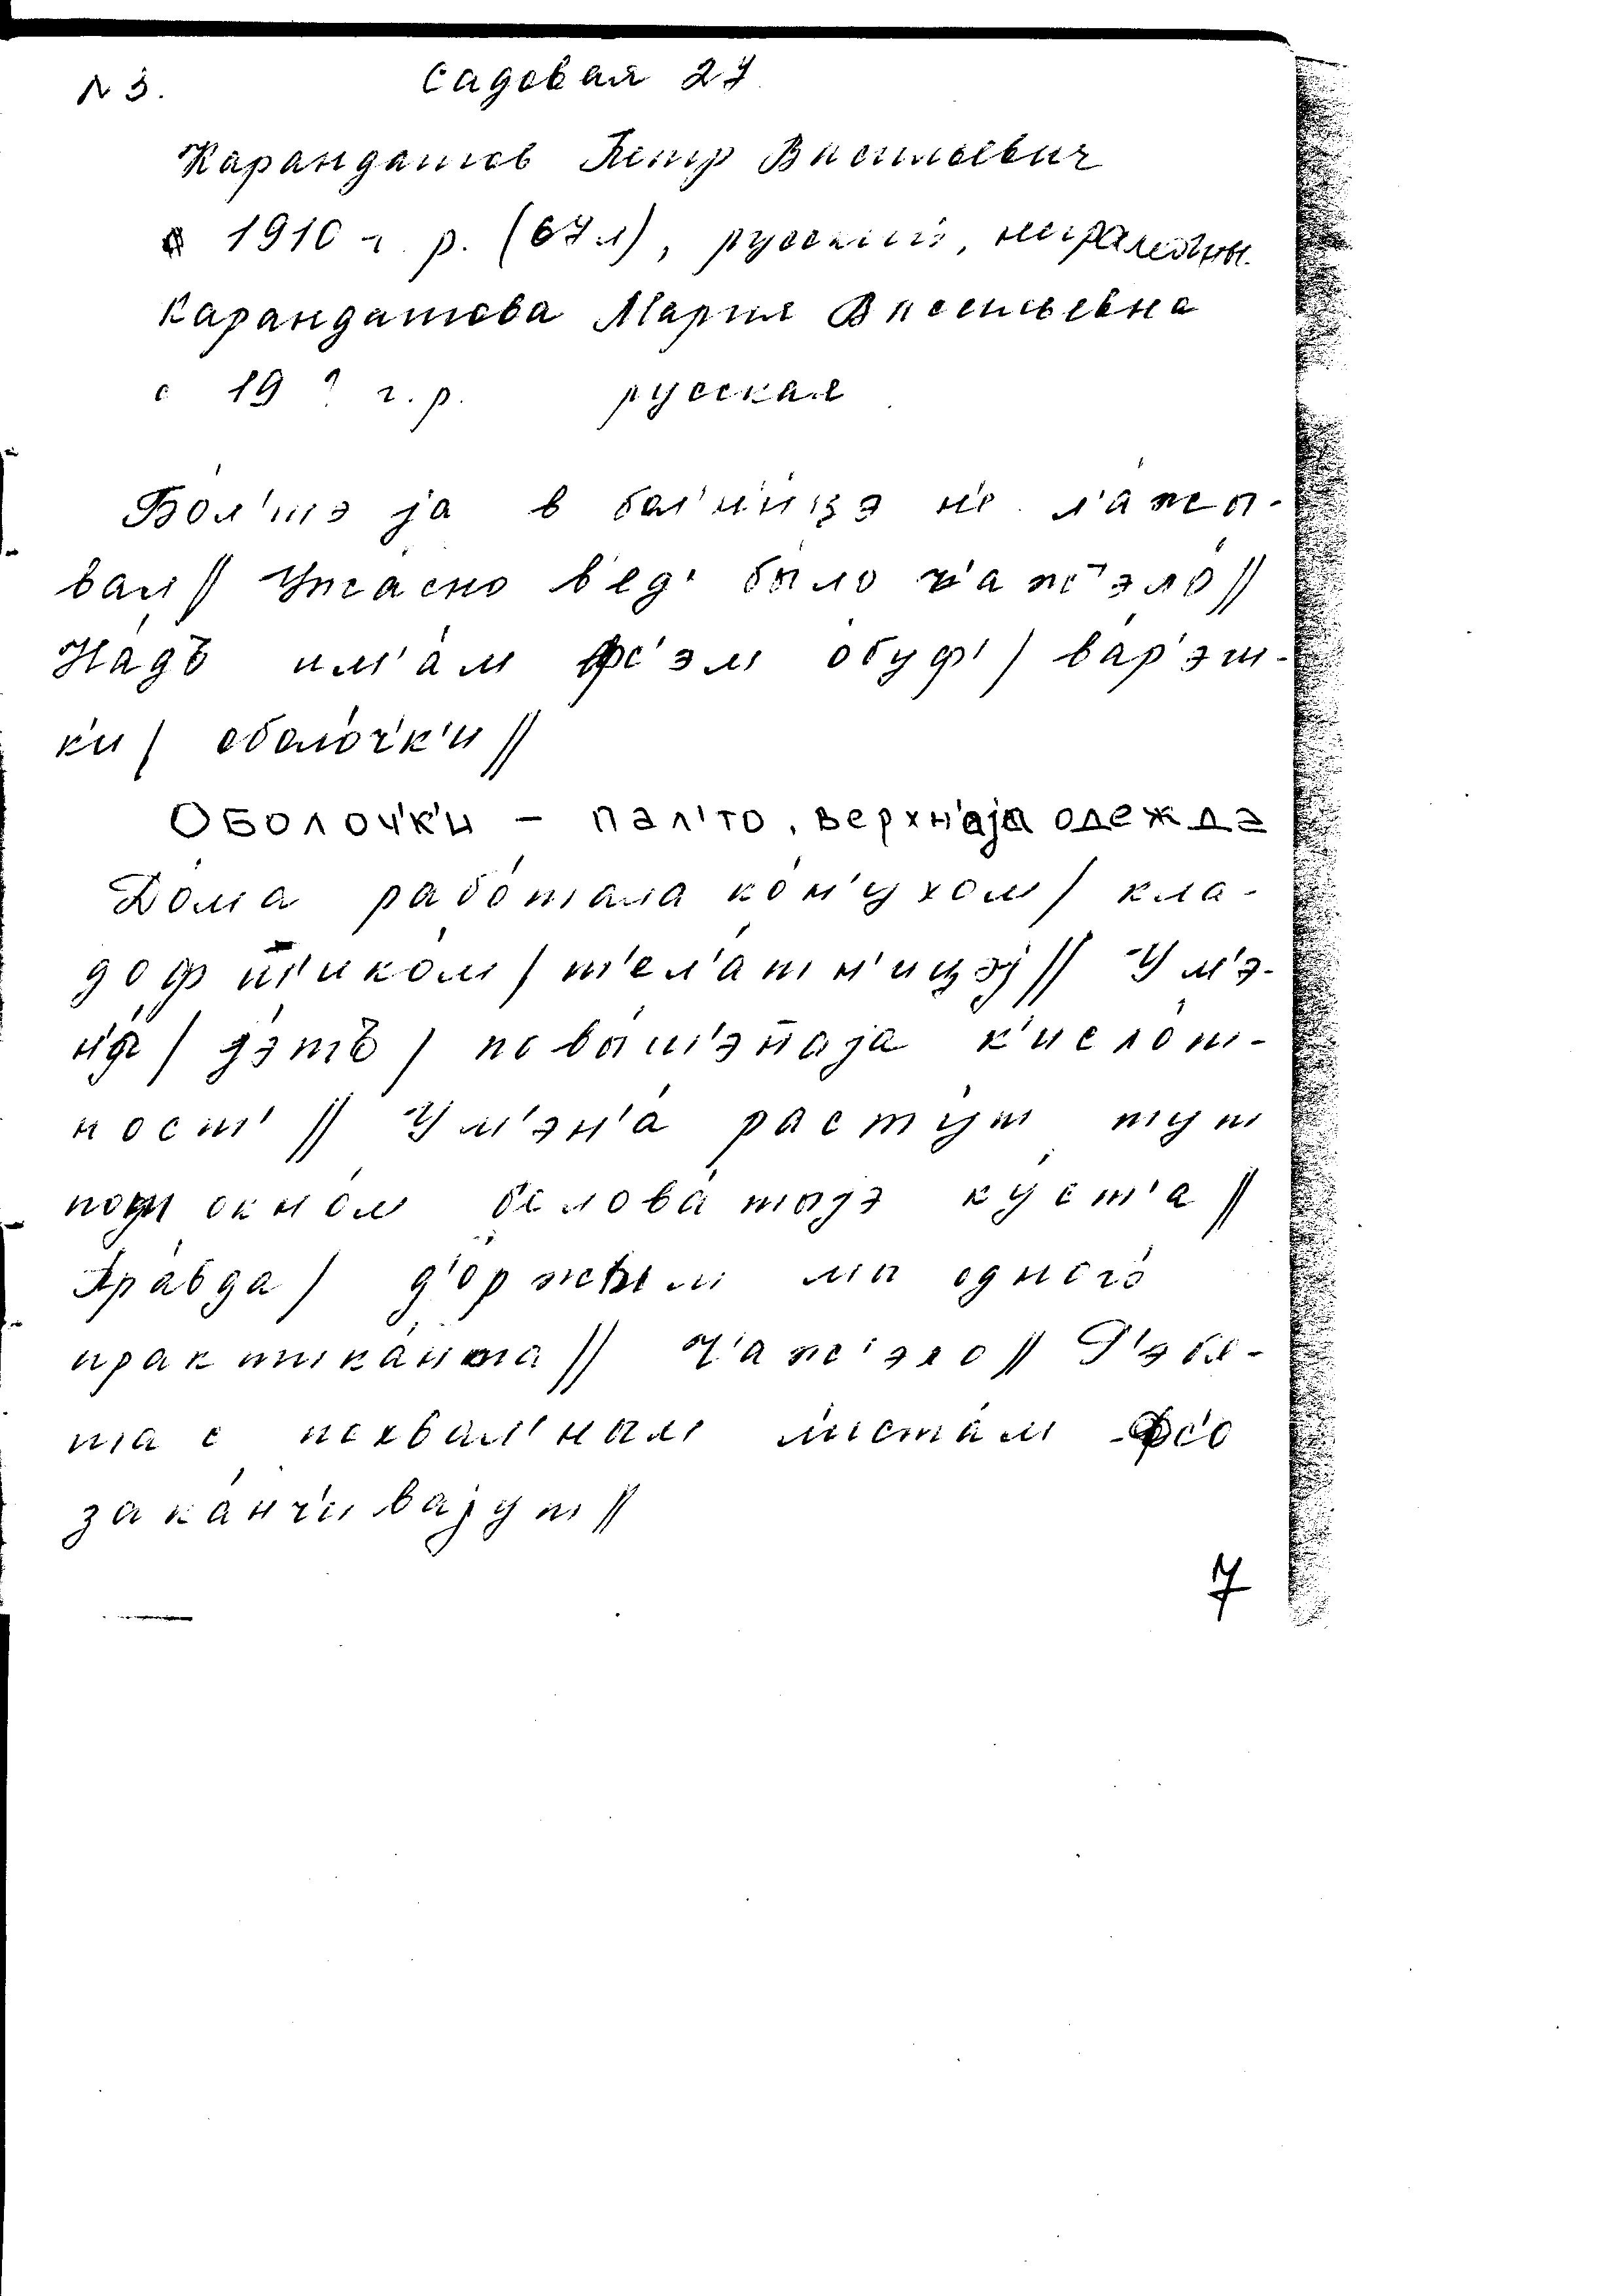 N 3. Садовая 27
Карандашов Петр Васильевич
с 1910 г. р. (67 л), русский, неграмотны.
Карандашова Мария Васильевна
с 19 ? г. р. русская
Бо́л'шэ ја в бал'н'и́цэ н'е л'а́жы-
вал // Ужа́сно в'ед' бы́ло ч'аж'эло́ //
На́дъ им'а́м фс'эм о́буф' / ва́р'эш-
к'и / оболо́ч'к'и //
Оболоч'к'и – пал'то, верхн'аја одежда
До́ма рабо́тала ко́н'ухом / кла-
доф ш'ико́м / т'ел'а́тн'ицэј // У м'э-
н'а́ / дэтъ / повы́ш'энаја к'исло́т-
ност' // У м'эн'а́ расту́т тут
под окно́м б'елова́тыјэ ку́ст'а //
Пра́вда / д'оржы́м мы одного́
практика́нта // Ч'аж'эло // Р'эб'а-
та с похвал'ным л'иста́м фс'о
зака́нч'ивајут //
7